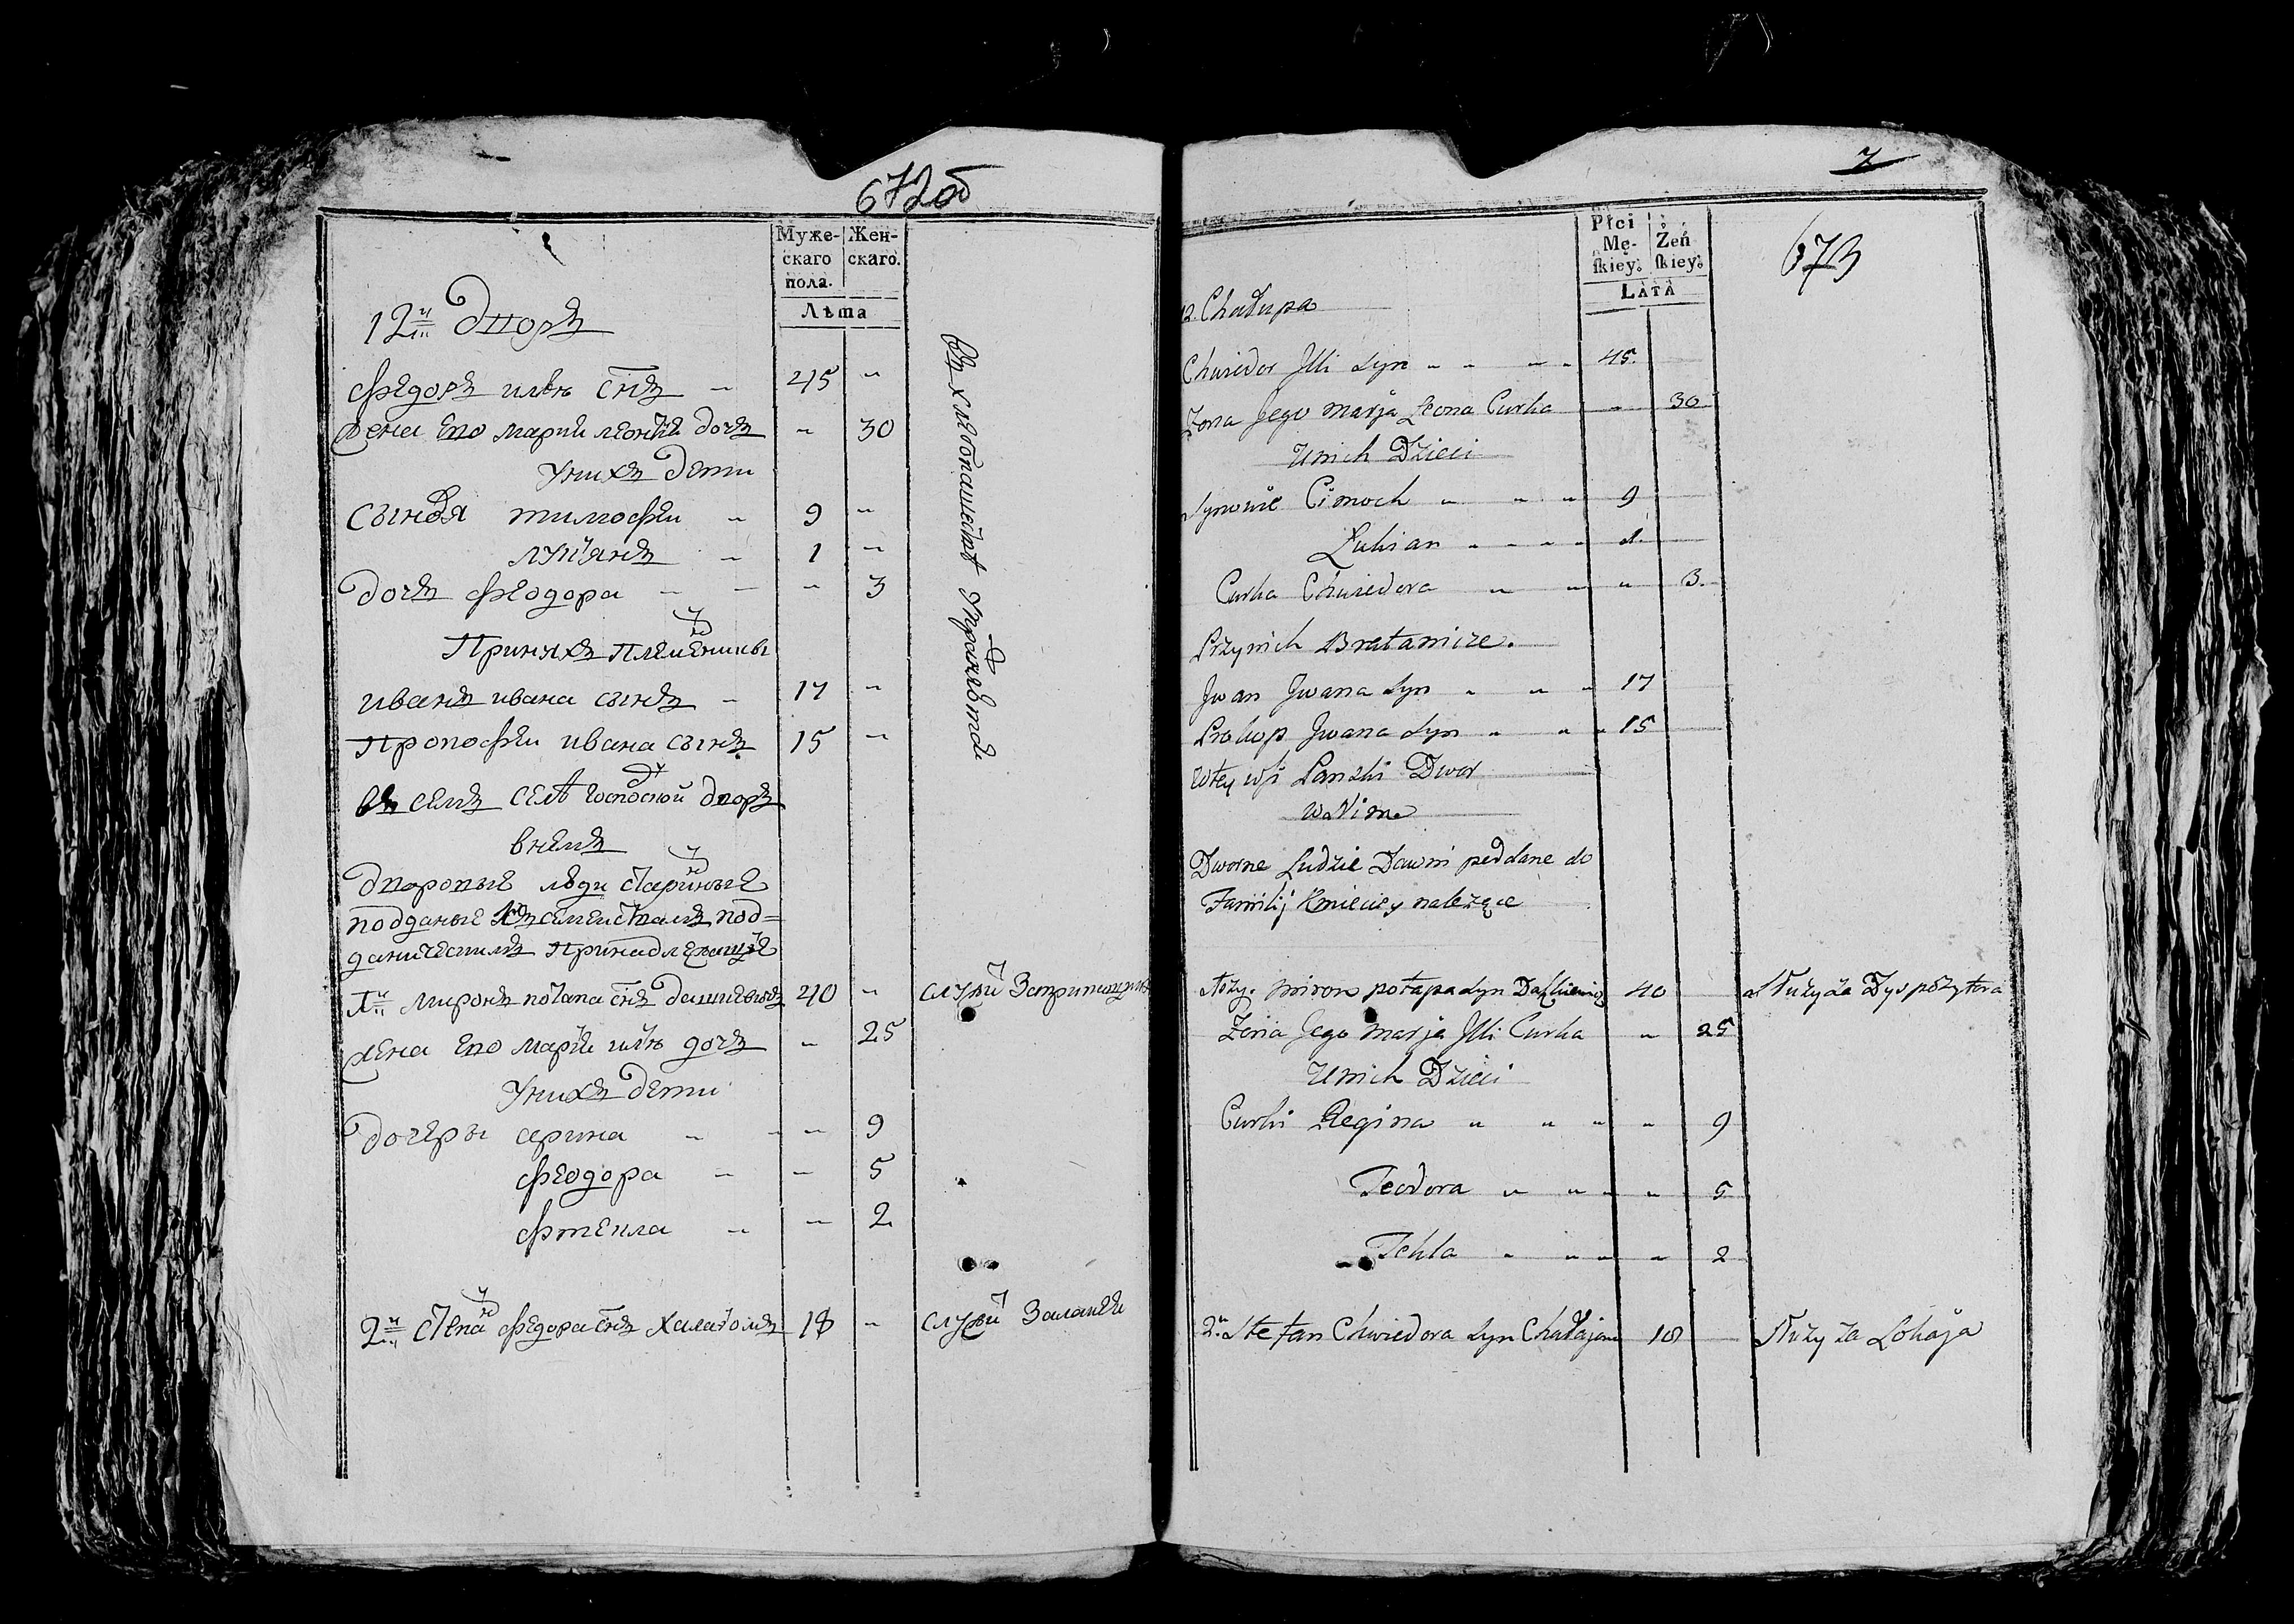 672об
Муже-
скаго
пола.
Жен-
скаго.
Лѣта
12й дворъ
Федоръ илѣ снъ 45 "
жена его мариа дочъ " 30
у нихъ дети
сыновя тимофеи " 9 "
лукянъ " 1 "
дочъ феодора " 3
При нихъ племеники
иванъ ивана сынъ 17 "
Прокофеи ивана сынъ 15 "
въ семъ селѣ господской дворъ
в немъ
дворовые люди старинные
подданые къ семействамъ под=
принадлежащие
1й миронъ потапа снъ 40 "
жена его мариа илѣ дочъ " 25
у нихъ дети
дочеры " 9
феодора " 5
фтекла " 2
2й степан федора снъ 18 " служи за лакея
7
673
Płci
Mę-
ſkiey.
Żeń
ſkiey.
LATA
12. Chałupa
Chwiedor Jlli syn 45.
Żona Jego Marja Leona Curka " 30
U nich Dzieci
Synowie Cimoch 9
Lukian 1.
Curka Chwiedora " 3.
Przy nich Bratanicze.
Jwan Jwana Syn 17
Prokop Jwana Syn 15
W tey wsi Panski Dwor
w Nim
Dworne Ludzie Dawni poddane do
Familij Kmieciey należące
Miron Potapa Syn Daszkiewicz 40 Służy za Dyspozytora
Żena Jego Marja Jlli Curka " 25
U nich Dzieci
Curki Regina " 9
Teodora " 5
Tekla " 2
2й Stefan Chwiedora Syn 18 Służy za Lokaja